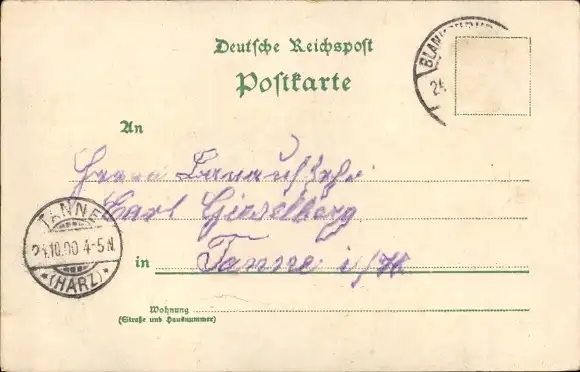 Deutsche Reichspost
Postkarte
An
Herrn
Carl Gieselberg
in Tanne i/H
Wohnung
(Straße und Hausnummer)
TANNE
24.10.00 4-5 N.
* (HARZ) *